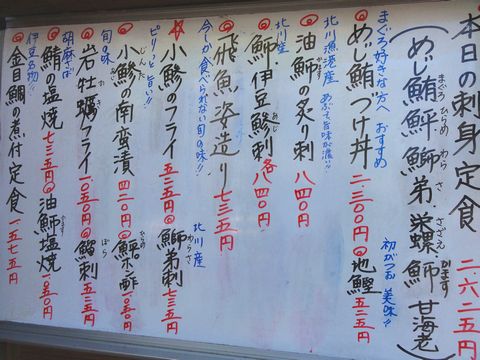 本日の刺身定食 二.六二五円
(めじ鮪 鮃 鰤 弟 栄螺 鰤 甘海老)
まぐろ ひらめ わらさ さざえ かます
まぐろ好きな方へおすすめ
めじ鮪づけ丼 二.三〇〇円 地鰹
初がつお 美味!!
北川漁港産 あぶって旨味が濃い!!
油鰤の炙り刺 八四〇円
北川産
鰤 伊豆鯵刺 各八四〇円
あじ
飛魚姿造り 七三五円
今しか食べられない旬の味!!
小鯵のフライ 五二五円 鰤弟刺
北川産
わらさ
ピリッと旨い!!
小鯵の南蛮漬 四二〇円 鮃ポン酢 一.〇五〇円
じんた
旬の味
岩牡蠣フライ 一.〇五〇円 鯔刺
ぼら
胡麻さば
鯖の塩焼 七三五円 油鰤塩焼 一.〇五〇円
伊豆名物!!
金目鯛の煮付定食 一.五七五円